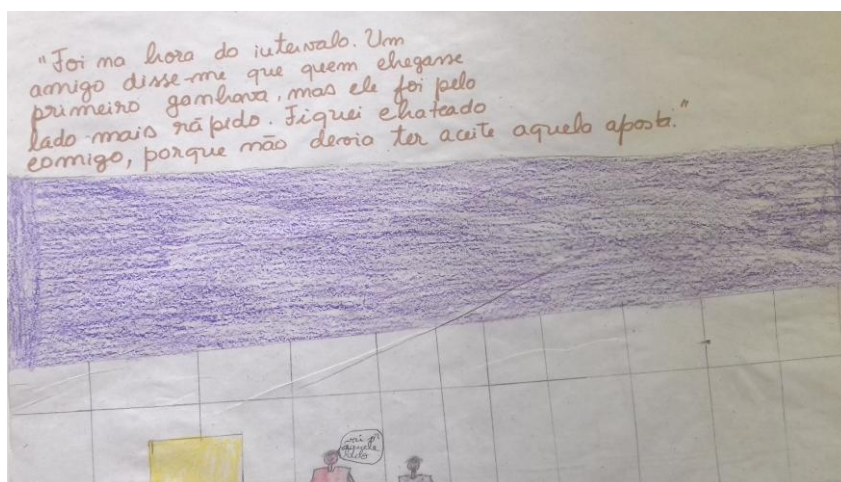 "Foi na hora do intervalo. Um
amigo disse-me que quem chegasse
primeiro ganhava, mas ele foi pelo
lado mais rápido. Fiquei chateado
comigo, porque não devia ter aceite aquela aposta."
vai p'
aquele
lado